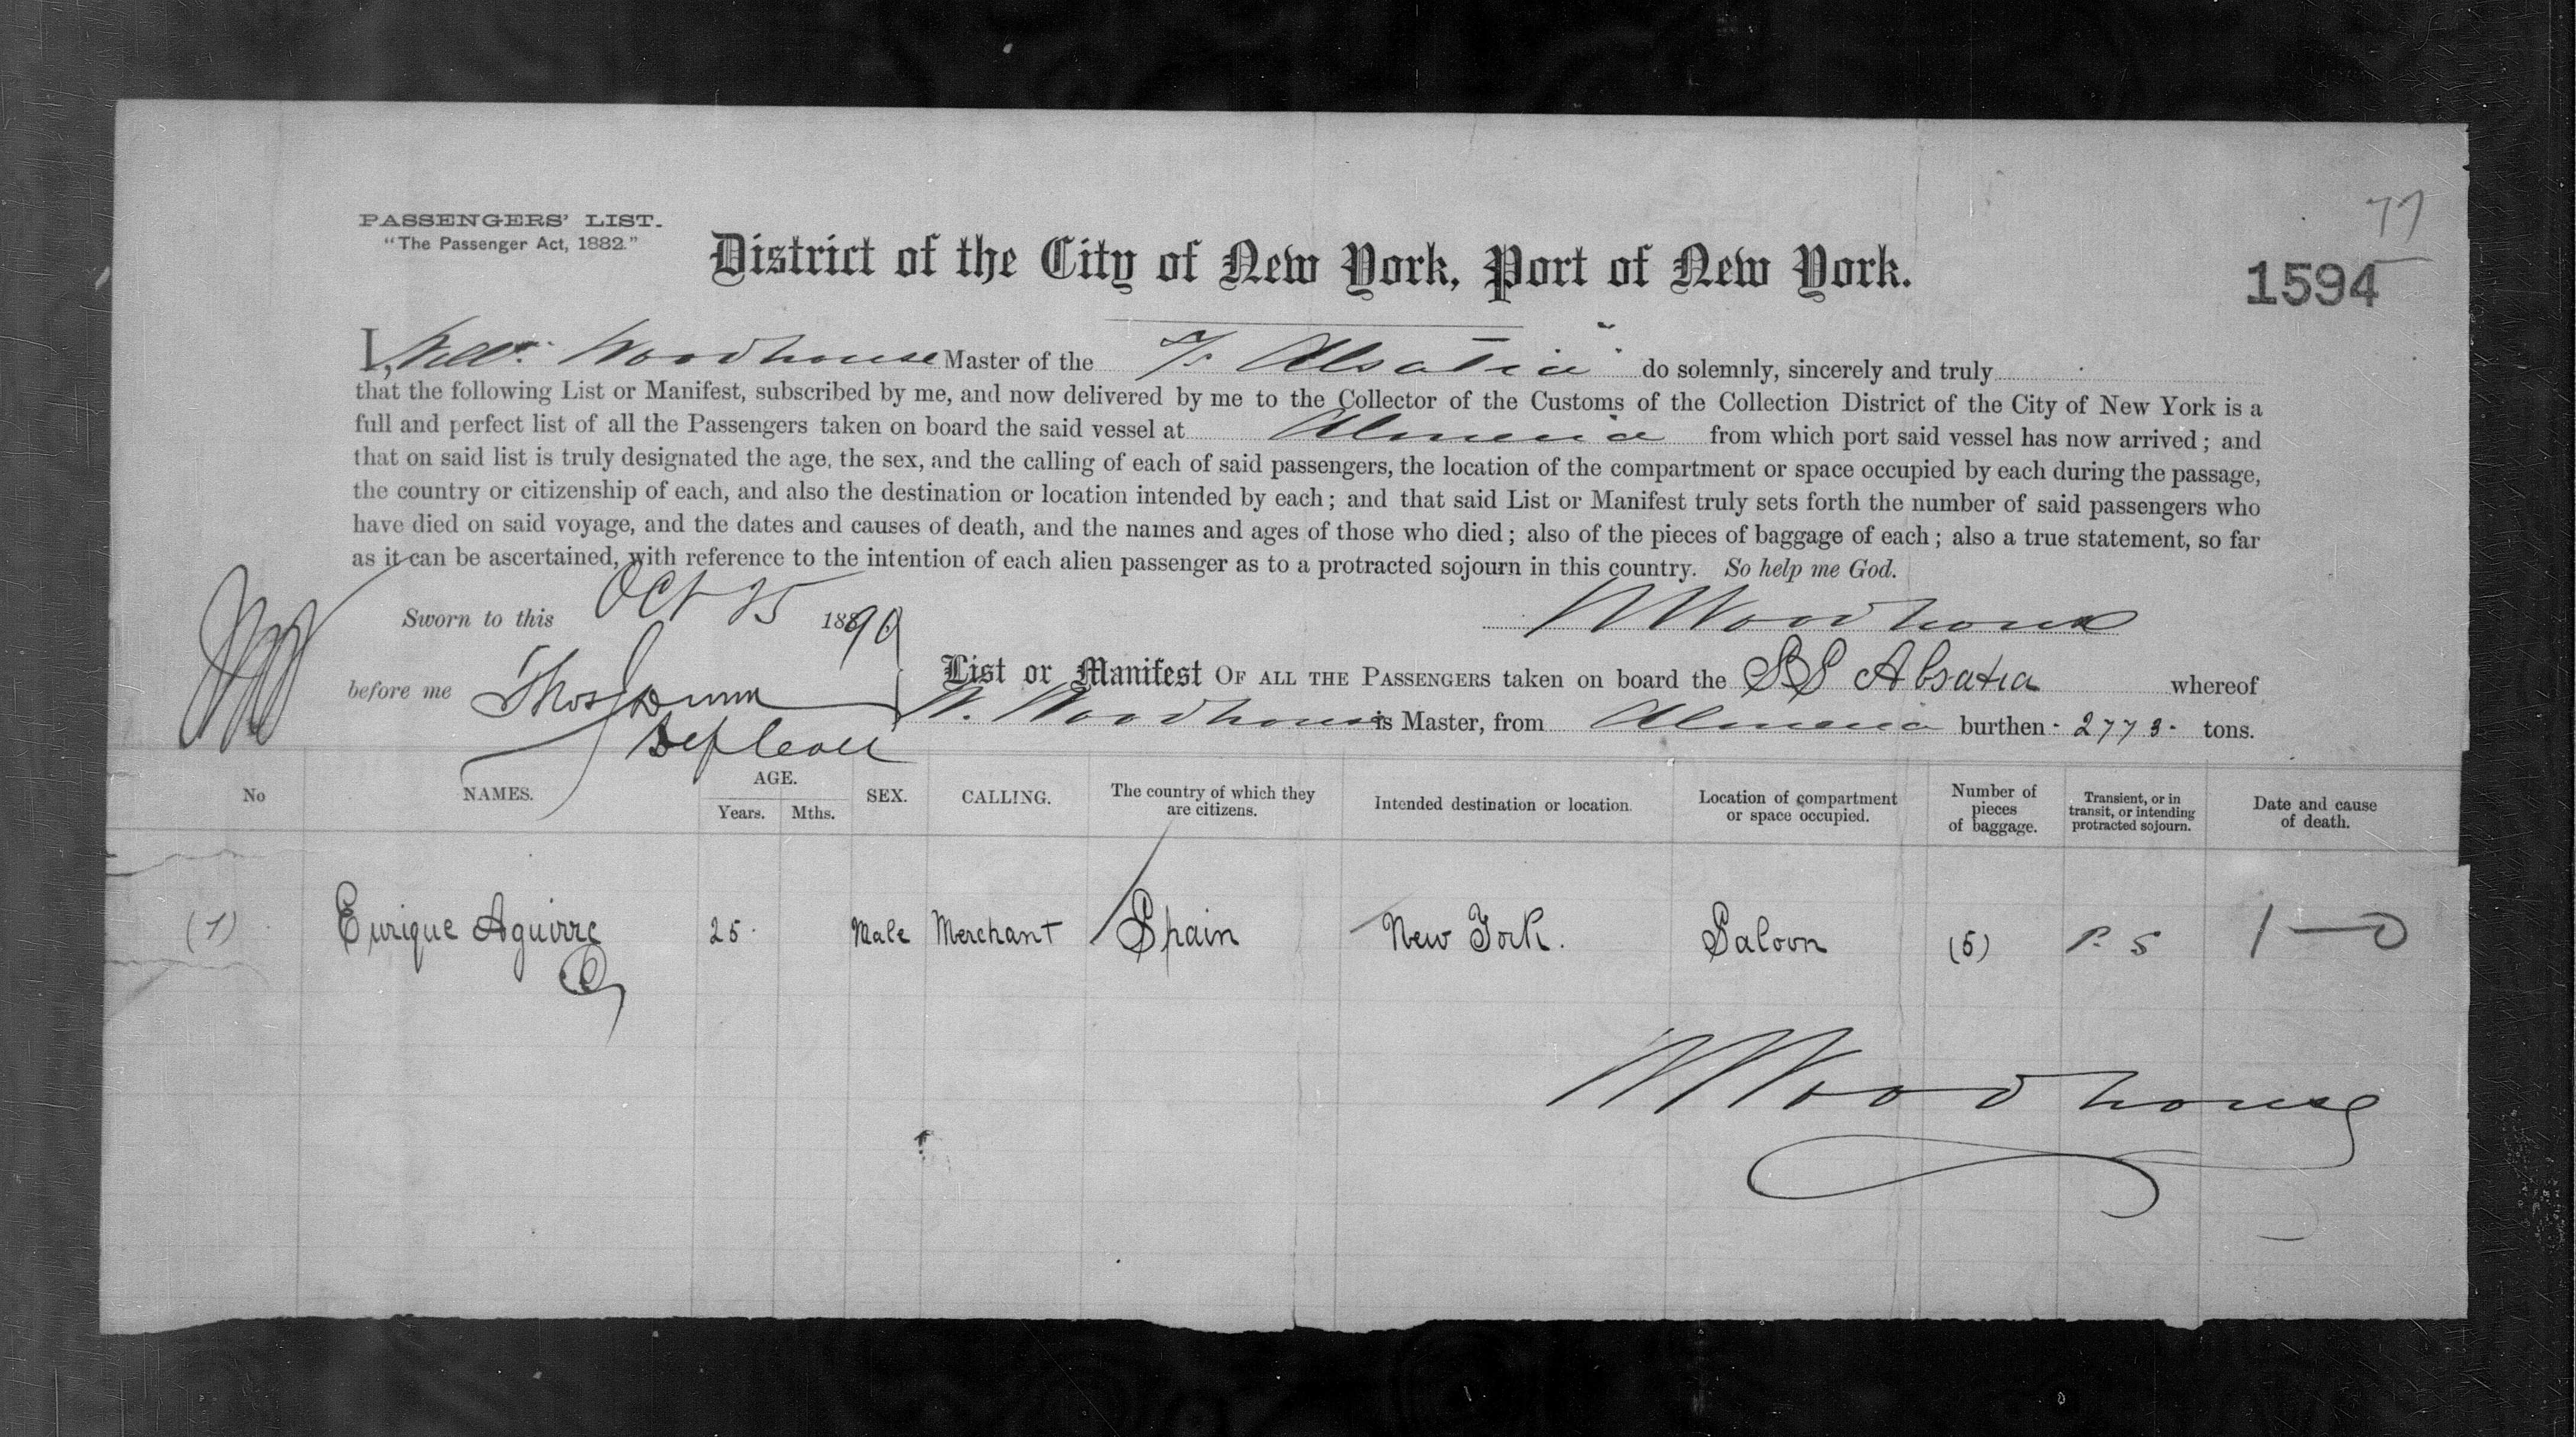 77
PASSENGERS' LIST.
"The Passenger Act, 1882."
District of the City of New York, Port of New York.
1594
I, Willm. Woodhouse Master of the S/S "Alsatia" do solemnly, sincerely and truly
that the following List or Manifest, subscribed by me, and now delivered by me to the Collector of the Customs of the Collection District of the City of New York is a
full and perfect list of all the Passengers taken on board the said vessel at Almeria from which port said vessel has now arrived; and
that on said list is truly designated the age, the sex, and the calling of each of said passengers, the location of the compartment or space occupied by each during the passage,
the country or citizenship of each, and also the destination or location intended by each; and that said List or Manifest truly sets forth the number of said passengers who
have died on said voyage, and the dates and causes of death, and the names and ages of those who died; also of the pieces of baggage of each; also a true statement, so far
as it can be ascertained, with reference to the intention of each alien passenger as to a protracted sojourn in this country. So help me God.
Sworn to this Oct 25 1890
W Woodhouse
before me Thos Dunn
Dep Coll
List or Manifest OF ALL THE PASSENGERS taken on board the SS Alsatia whereof
W. Woodhouse is Master, from Almeria burthen 2773 tons.
No NAMES. AGE. Years. Mths. SEX. CALLING. The country of which they are citizens. Intended destination or location. Location of compartment or space occupied. Number of pieces of baggage. Transient, or in transit, or intending protracted sojourn. Date and cause of death.
(1) Enrique Aguirre 25 Male Merchant Spain New York. Saloon (5) P. S 1—0
W Woodhouse